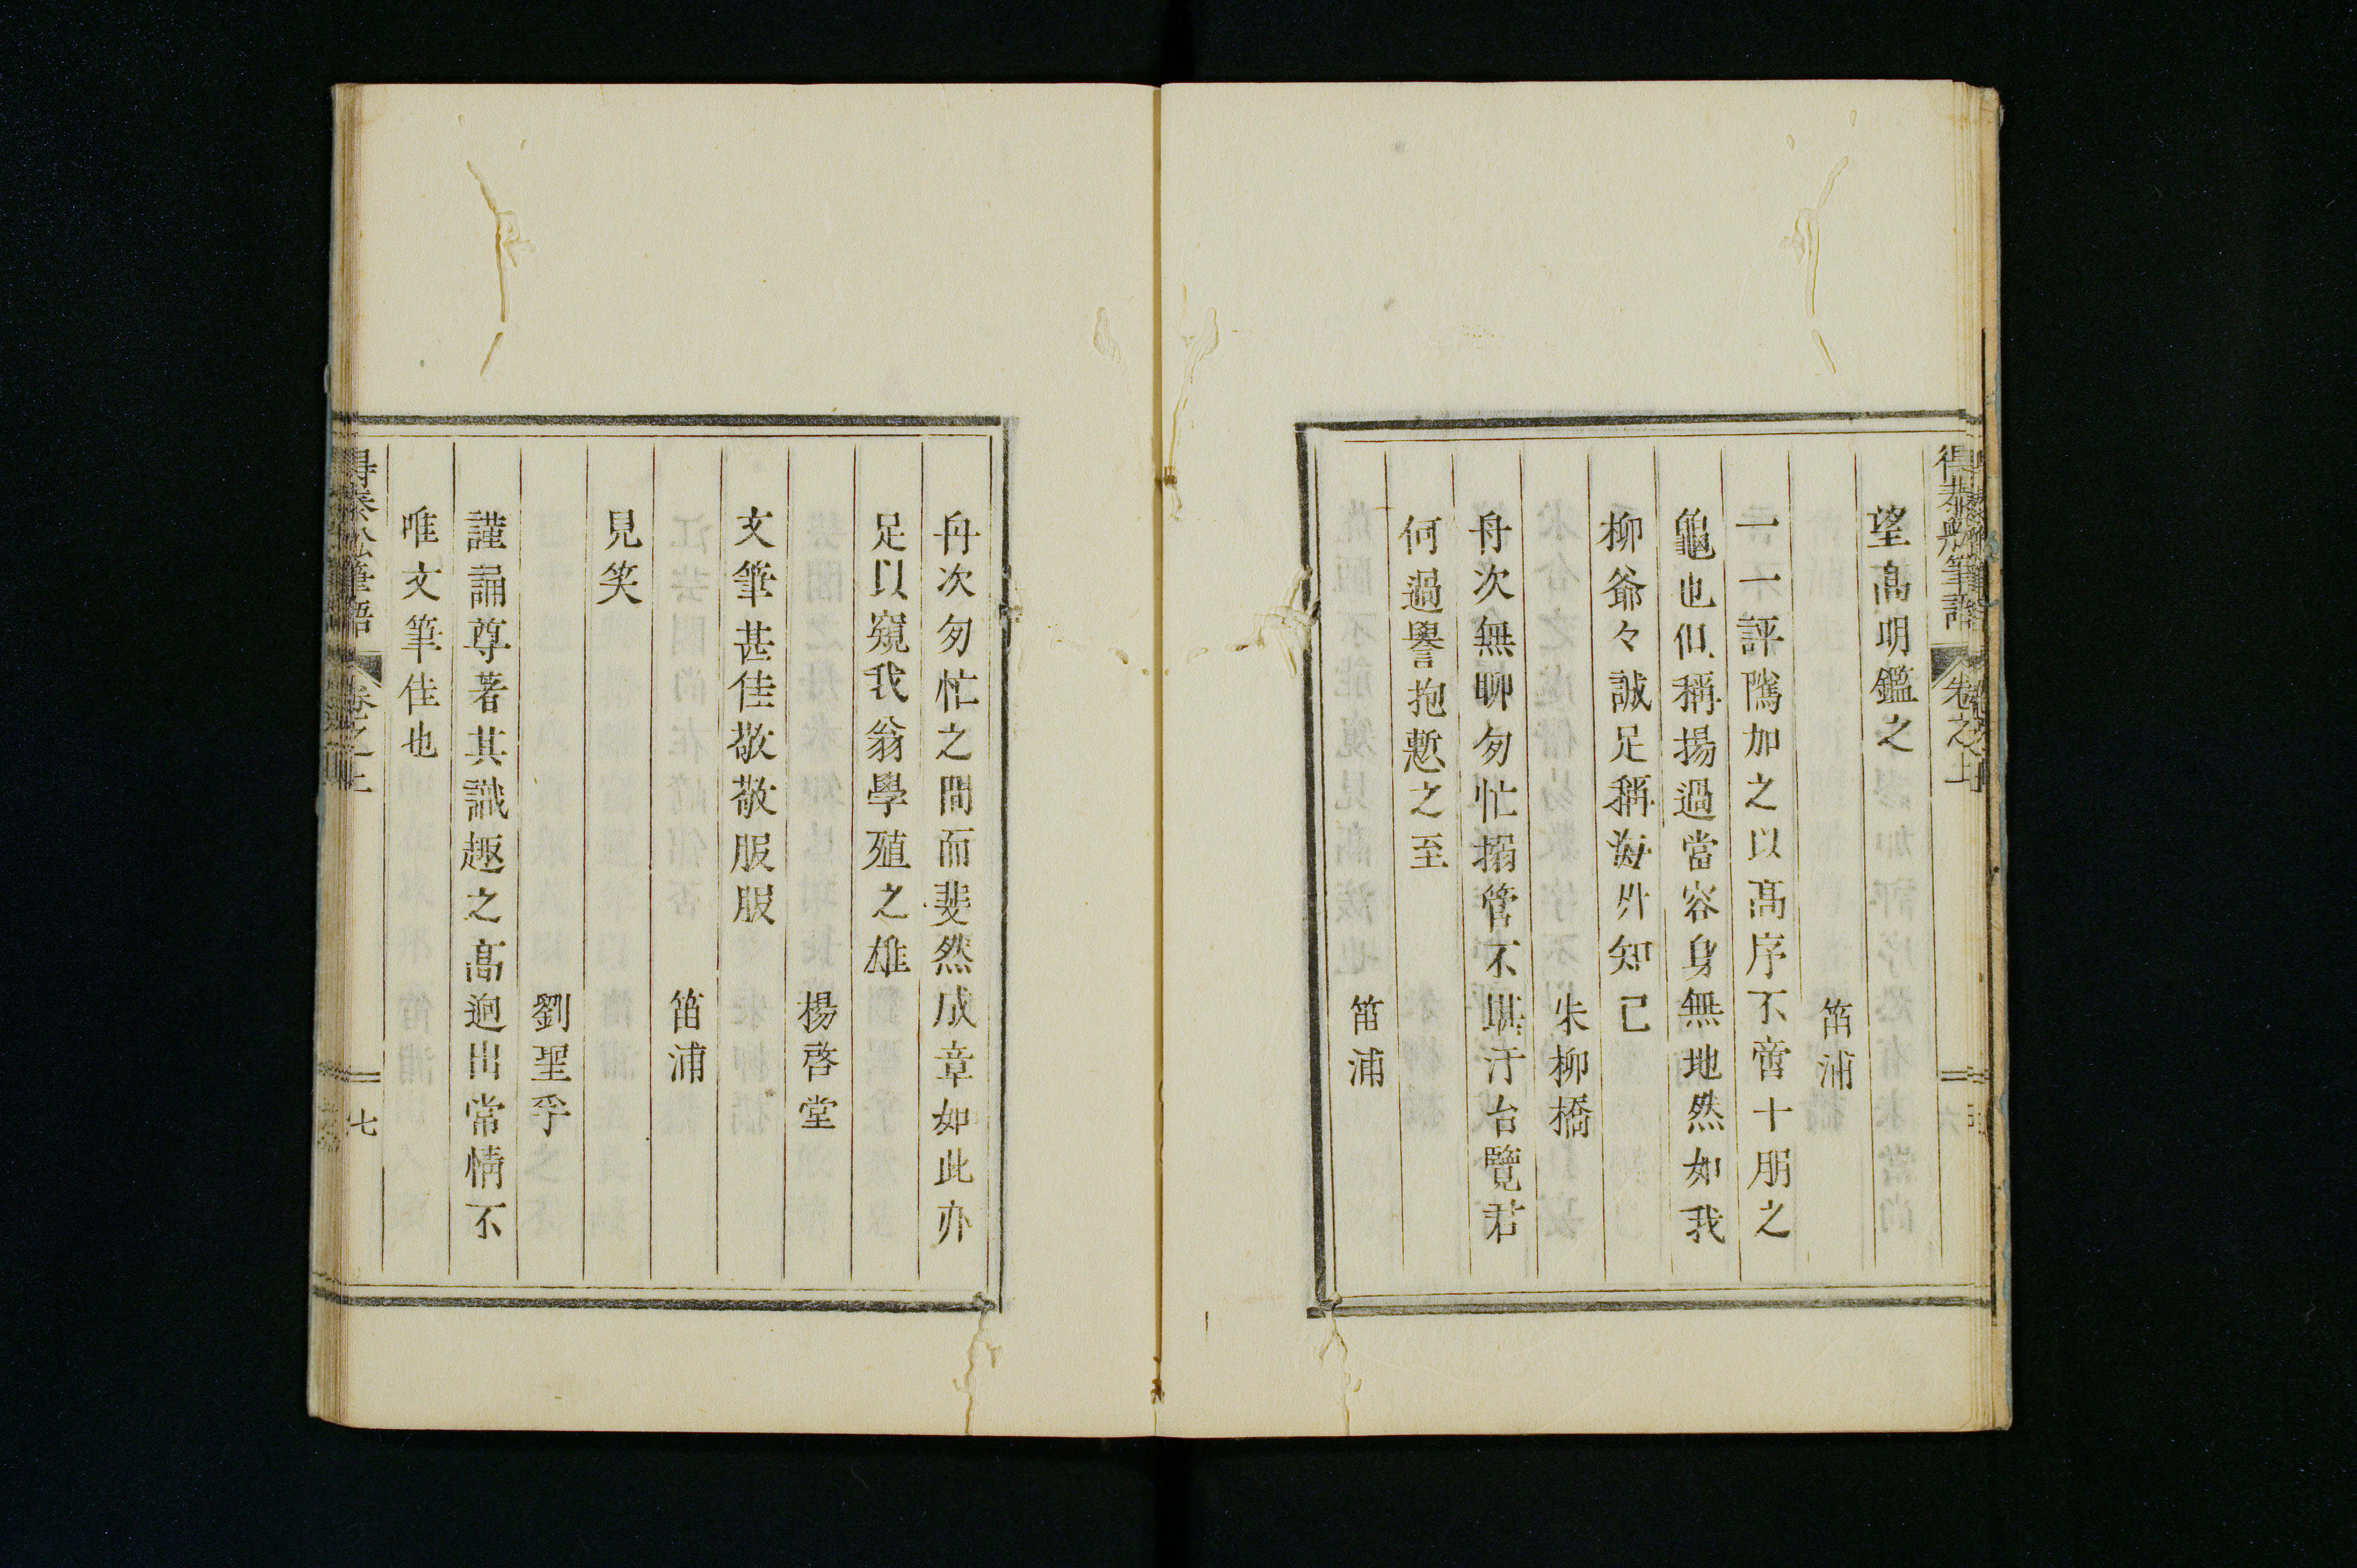 得泰船筆語 卷之上
望高明鑑之
笛浦
一一評隲加之以高序不啻十朋之
龜也但稱揚過當容身無地然如我
柳爺々誠足稱海外知己
朱柳橋
舟次無聊匆忙搦管不堪汙台覽君
何過譽抱慙之至
笛浦
舟次匆忙之間而斐然成章如此亦
足以窺我翁學殖之雄
楊啓堂
文筆甚佳敬敬服服
笛浦
見笑
劉聖孚
謹誦尊著其識趣之高逈出常情不
唯文筆佳也
得泰船筆語 卷之上 七